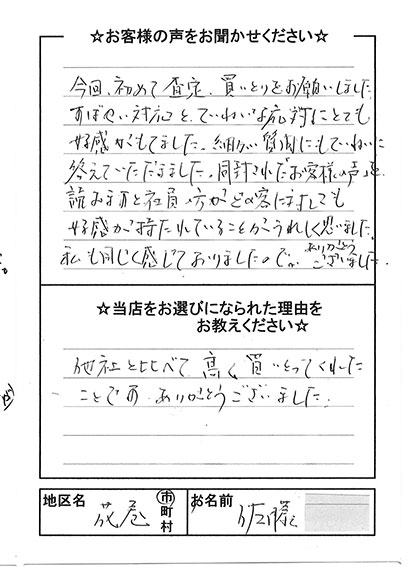 ☆お客様の声をお聞かせください☆
今回、初めて査定、買いとりをお願いしました。
すばやい対応と、ていねいな応対にとても
好感がもてました。細かい質問にもていねいに
答えていただきました。同封されたお客様の声を
読みますと社員の方がどの客に対しても
好感が持たれていることがうれしく思いました。
私も同じく感じておりましたので。ありがとう
ございました。
☆当店をお選びになられた理由を
お教えください☆
他社と比べて、高く買いとってくれた
ことです。ありがとうございました。
地区名
市町村
お名前 佐藤